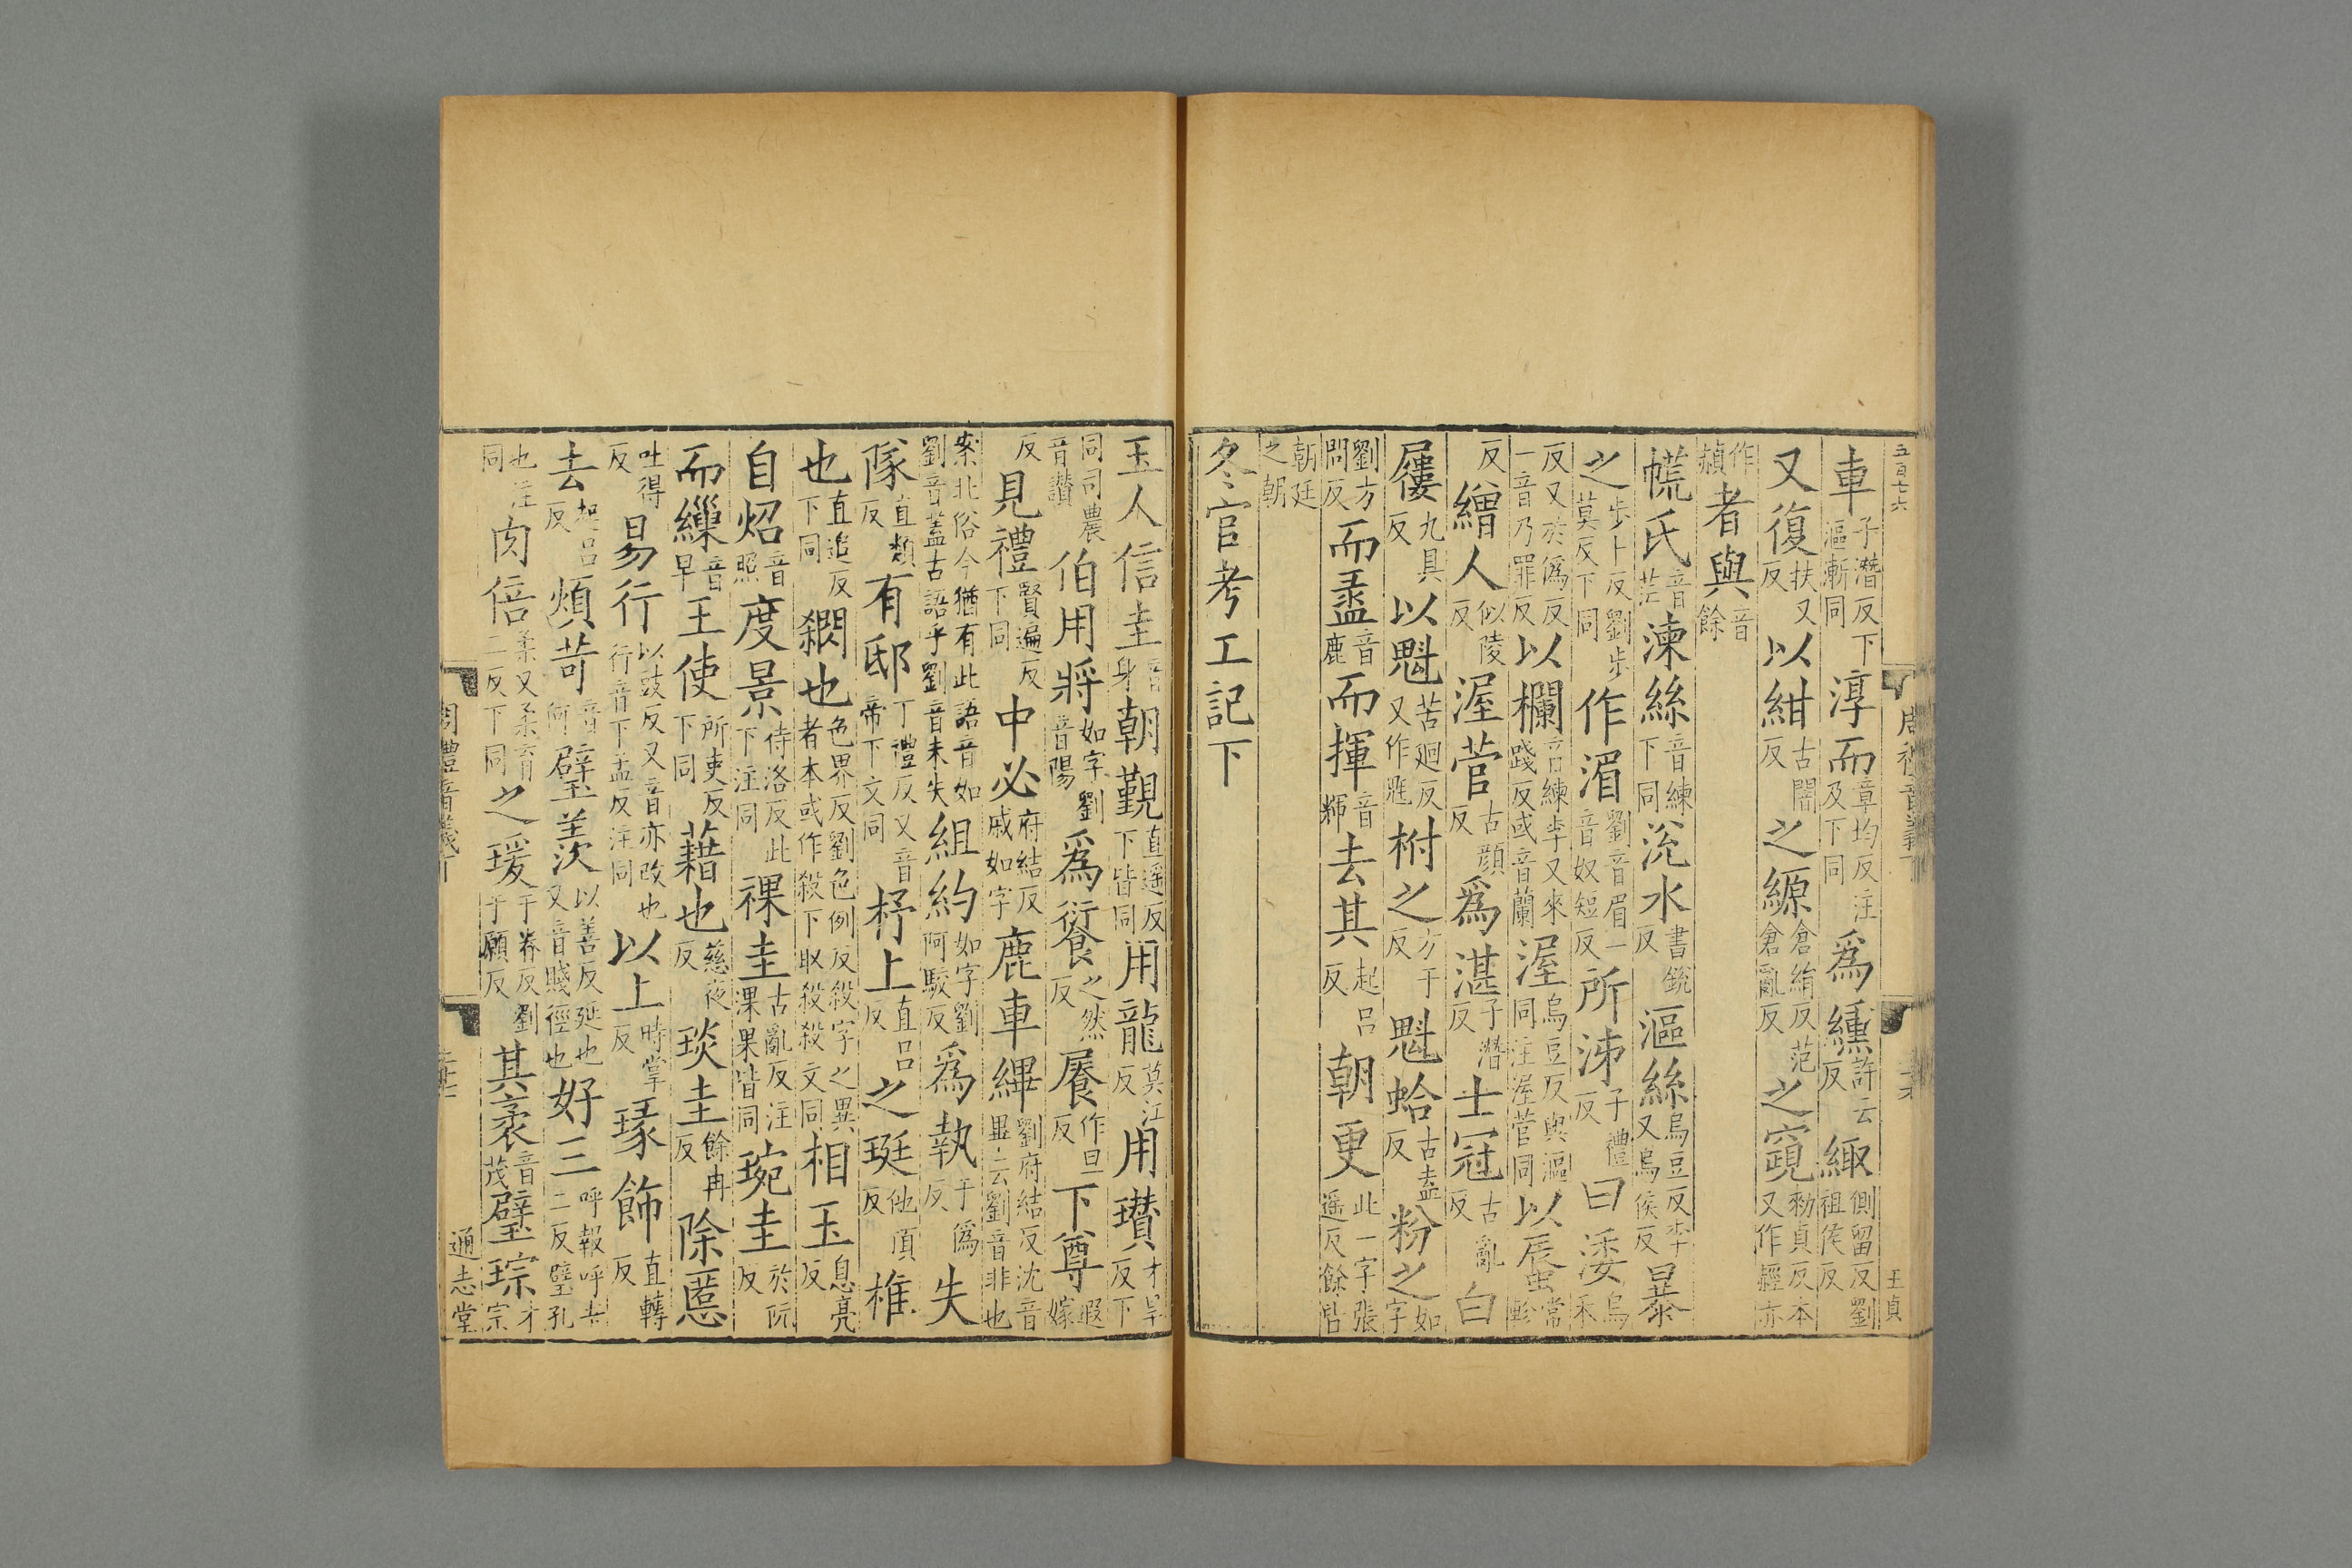 五百七六
車子潛反下漚漸同淳而章均反注及下同爲纁許云反緅側留反劉祖侯反
又復扶又反以紺古闇反之縓倉絹反范倉亂反之窺勑貞反本又作䞓亦
作赬者與音餘
㡛氏音茫湅絲音練下同涗水書銳反漚絲烏豆反李又烏侯反暴
之步卜反劉步莫反下同作湄劉音眉一音奴短反所沸子禮反曰涹烏禾
反又於僞反一音乃罪反以欄音練李又來踐反或音蘭渥烏豆反與漚同注渥菅同以蜃常軫
反繒人似陵反渥菅古顏反爲湛子潛反士冠古亂反白
屨九具反以魁苦迴反又作𧿁柎之方于反魁蛤古盍反粉之如字
劉方問反而盝音鹿而揮音輝去其起呂反朝更此一字張遥反餘皆
朝廷之朝
冬官考工記下
王貞
玉人信圭音身朝覲直遥反下皆同用龍莫江反用瓚才旱反下
同司農音讃伯用將如字劉音陽爲餰之然反𩜾作旦反下尊遐嫁
反見禮賢遍反下同中必府結反戚如字鹿車縪劉府結反沈音畢云劉音非也
案北俗今猶有此語音如劉音蓋古語乎劉音未失組約如字劉阿駮反爲執于僞反失
隊直類反有邸丁禮反又音帝下文同杼上直呂反之珽他頂反椎
也直追反下同䦨也色界反劉色例反殺字之異者本或作殺下取殺殺文同相玉息亮反
自炤音照度景待洛反此下注同祼圭古亂反注淉果皆同琬圭於阮反
而繅音早王使所吏反下同藉也慈夜反琰圭餘冉反除慝
吐得反易行以豉反又音亦改也行音下孟反注同以上時掌反瑑飾直轉反
去起呂反煩苛音何璧羡以善反延也又音賤徑也好三呼報呼老二反璧孔
也注同肉倍柔又柔育二反下同之瑗于眷反劉于願反其袤音茂璧琮才宗
周禮音義下
通志堂